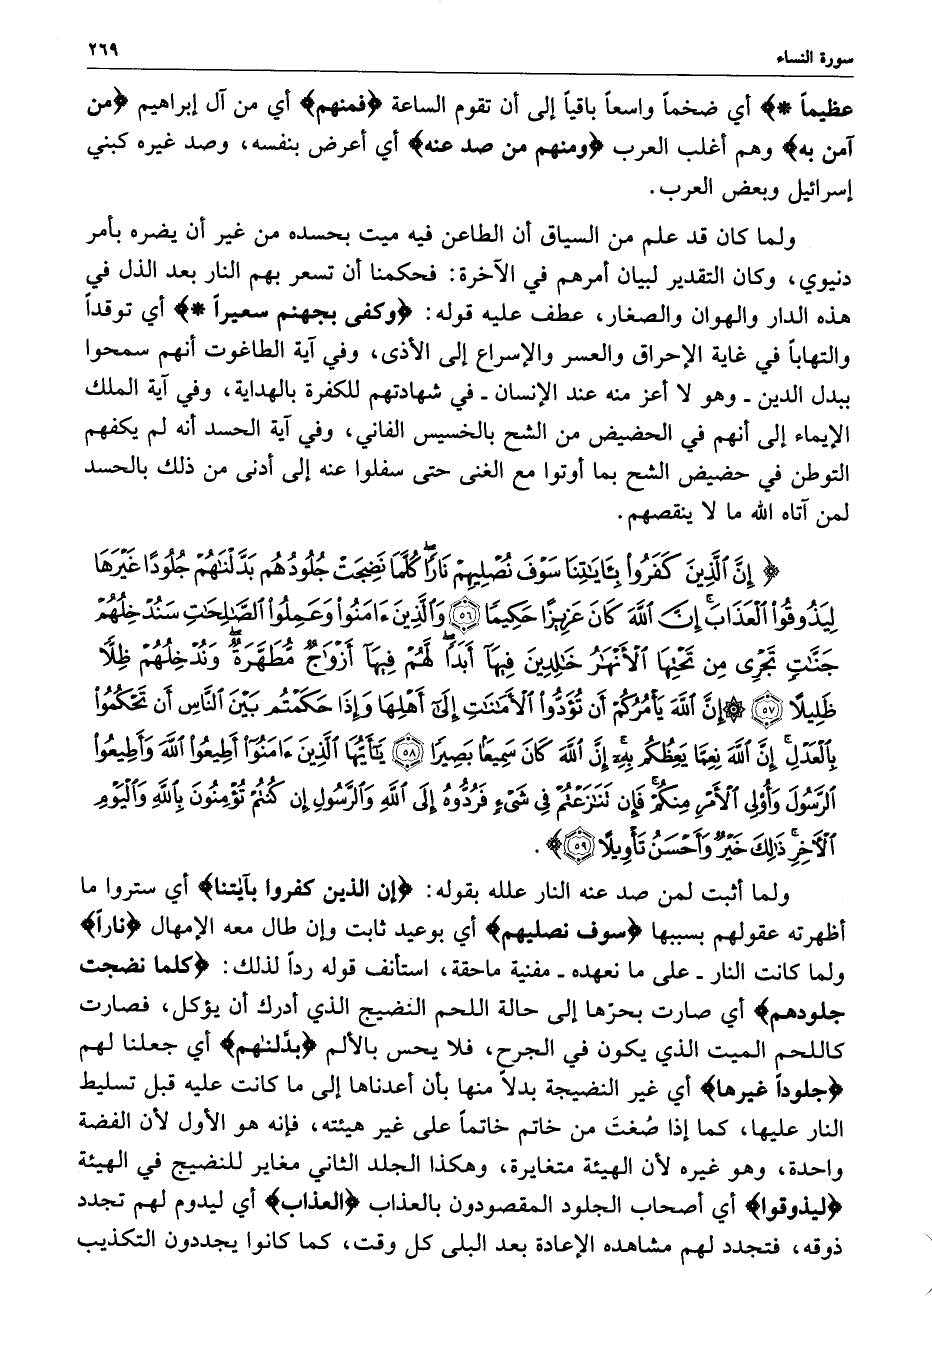 سورة النساء
٢٦٩
عظيماً *﴾ أي ضخماً واسعاً باقياً إلى أن تقوم الساعة ﴿فمنهم﴾ أي من آل إبراهيم ﴿من
آمن به﴾ وهم أغلب العرب ﴿ومنهم من صد عنه﴾ أي أعرض بنفسه، وصد غيره كبني
إسرائيل وبعض العرب.
ولما كان قد علم من السياق أن الطاعن فيه ميت بحسده من غير أن يضره بأمر
دنيوي، وكان التقدير لبيان أمرهم في الآخرة: فحكمنا أن تسعر بهم النار بعد الذل في
هذه الدار والهوان والصغار، عطف عليه قوله: ﴿وكفى بجهنم سعيراً *﴾ أي توقداً
والتهاباً في غاية الإحراق والعسر والإسراع إلى الأذى، وفي آية الطاغوت أنهم سمحوا
ببدل الدين ـ وهو لا أعز منه عند الإنسان ـ في شهادتهم للكفرة بالهداية، وفي آية الملك
الإيماء إلى أنهم في الحضيض من الشح بالخسيس الفاني، وفي آية الحسد أنه لم يكفهم
التوطن في حضيض الشح بما أوتوا مع الغنى حتى سفلوا عنه إلى أدنى من ذلك بالحسد
لمن آتاه الله ما لا ينقصهم.
﴿إِنَّ ٱلَّذِينَ كَفَرُوا۟ بِـَٔايَـٰتِنَا سَوْفَ نُصْلِيهِمْ نَارًا كُلَّمَا نَضِجَتْ جُلُودُهُم بَدَّلْنَـٰهُمْ جُلُودًا غَيْرَهَا
لِيَذُوقُوا۟ ٱلْعَذَابَ ۗ إِنَّ ٱللَّهَ كَانَ عَزِيزًا حَكِيمًا ٥٦ وَٱلَّذِينَ ءَامَنُوا۟ وَعَمِلُوا۟ ٱلصَّـٰلِحَـٰتِ سَنُدْخِلُهُمْ
جَنَّـٰتٍ تَجْرِى مِن تَحْتِهَا ٱلْأَنْهَـٰرُ خَـٰلِدِينَ فِيهَآ أَبَدًا ۖ لَّهُمْ فِيهَآ أَزْوَٰجٌ مُّطَهَّرَةٌ ۖ وَنُدْخِلُهُمْ ظِلًّا
ظَلِيلًا ٥٧ ۞ إِنَّ ٱللَّهَ يَأْمُرُكُمْ أَن تُؤَدُّوا۟ ٱلْأَمَـٰنَـٰتِ إِلَىٰٓ أَهْلِهَا وَإِذَا حَكَمْتُم بَيْنَ ٱلنَّاسِ أَن تَحْكُمُوا۟
بِٱلْعَدْلِ ۚ إِنَّ ٱللَّهَ نِعِمَّا يَعِظُكُم بِهِۦٓ ۗ إِنَّ ٱللَّهَ كَانَ سَمِيعًۢا بَصِيرًا ٥٨ يَـٰٓأَيُّهَا ٱلَّذِينَ ءَامَنُوٓا۟ أَطِيعُوا۟ ٱللَّهَ وَأَطِيعُوا۟
ٱلرَّسُولَ وَأُو۟لِى ٱلْأَمْرِ مِنكُمْ ۖ فَإِن تَنَـٰزَعْتُمْ فِى شَىْءٍ فَرُدُّوهُ إِلَى ٱللَّهِ وَٱلرَّسُولِ إِن كُنتُمْ تُؤْمِنُونَ بِٱللَّهِ وَٱلْيَوْمِ
ٱلْـَٔاخِرِ ۚ ذَٰلِكَ خَيْرٌ وَأَحْسَنُ تَأْوِيلًا ٥٩﴾.
ولما أثبت لمن صد عنه النار علله بقوله: ﴿إن الذين كفروا بآيٰتنا﴾ أي ستروا ما
أظهرته عقولهم بسببها ﴿سوف نصليهم﴾ أي بوعيد ثابت وإن طال معه الإمهال ﴿ناراً﴾
ولما كانت النار ـ على ما نعهده ـ مفنية ماحقة، استأنف قوله رداً لذلك: ﴿كلما نضجت
جلودهم﴾ أي صارت بحرّها إلى حالة اللحم النضيج الذي أدرك أن يؤكل، فصارت
كاللحم الميت الذي يكون في الجرح، فلا يحس بالألم ﴿بدَّلنٰهم﴾ أي جعلنا لهم
﴿جلوداً غيرها﴾ أي غير النضيجة بدلاً منها بأن أعدناها إلى ما كانت عليه قبل تسليط
النار عليها، كما إذا صُغتَ من خاتم خاتماً على غير هيئته، فإنه هو الأول لأن الفضة
واحدة، وهو غيره لأن الهيئة متغايرة، وهكذا الجلد الثاني مغاير للنضيج في الهيئة
﴿ليذوقوا﴾ أي أصحاب الجلود المقصودون بالعذاب ﴿العذاب﴾ أي ليدوم لهم تجدد
ذوقه، فتجدد لهم مشاهده الإعادة بعد البلى كل وقت، كما كانوا يجددون التكذيب